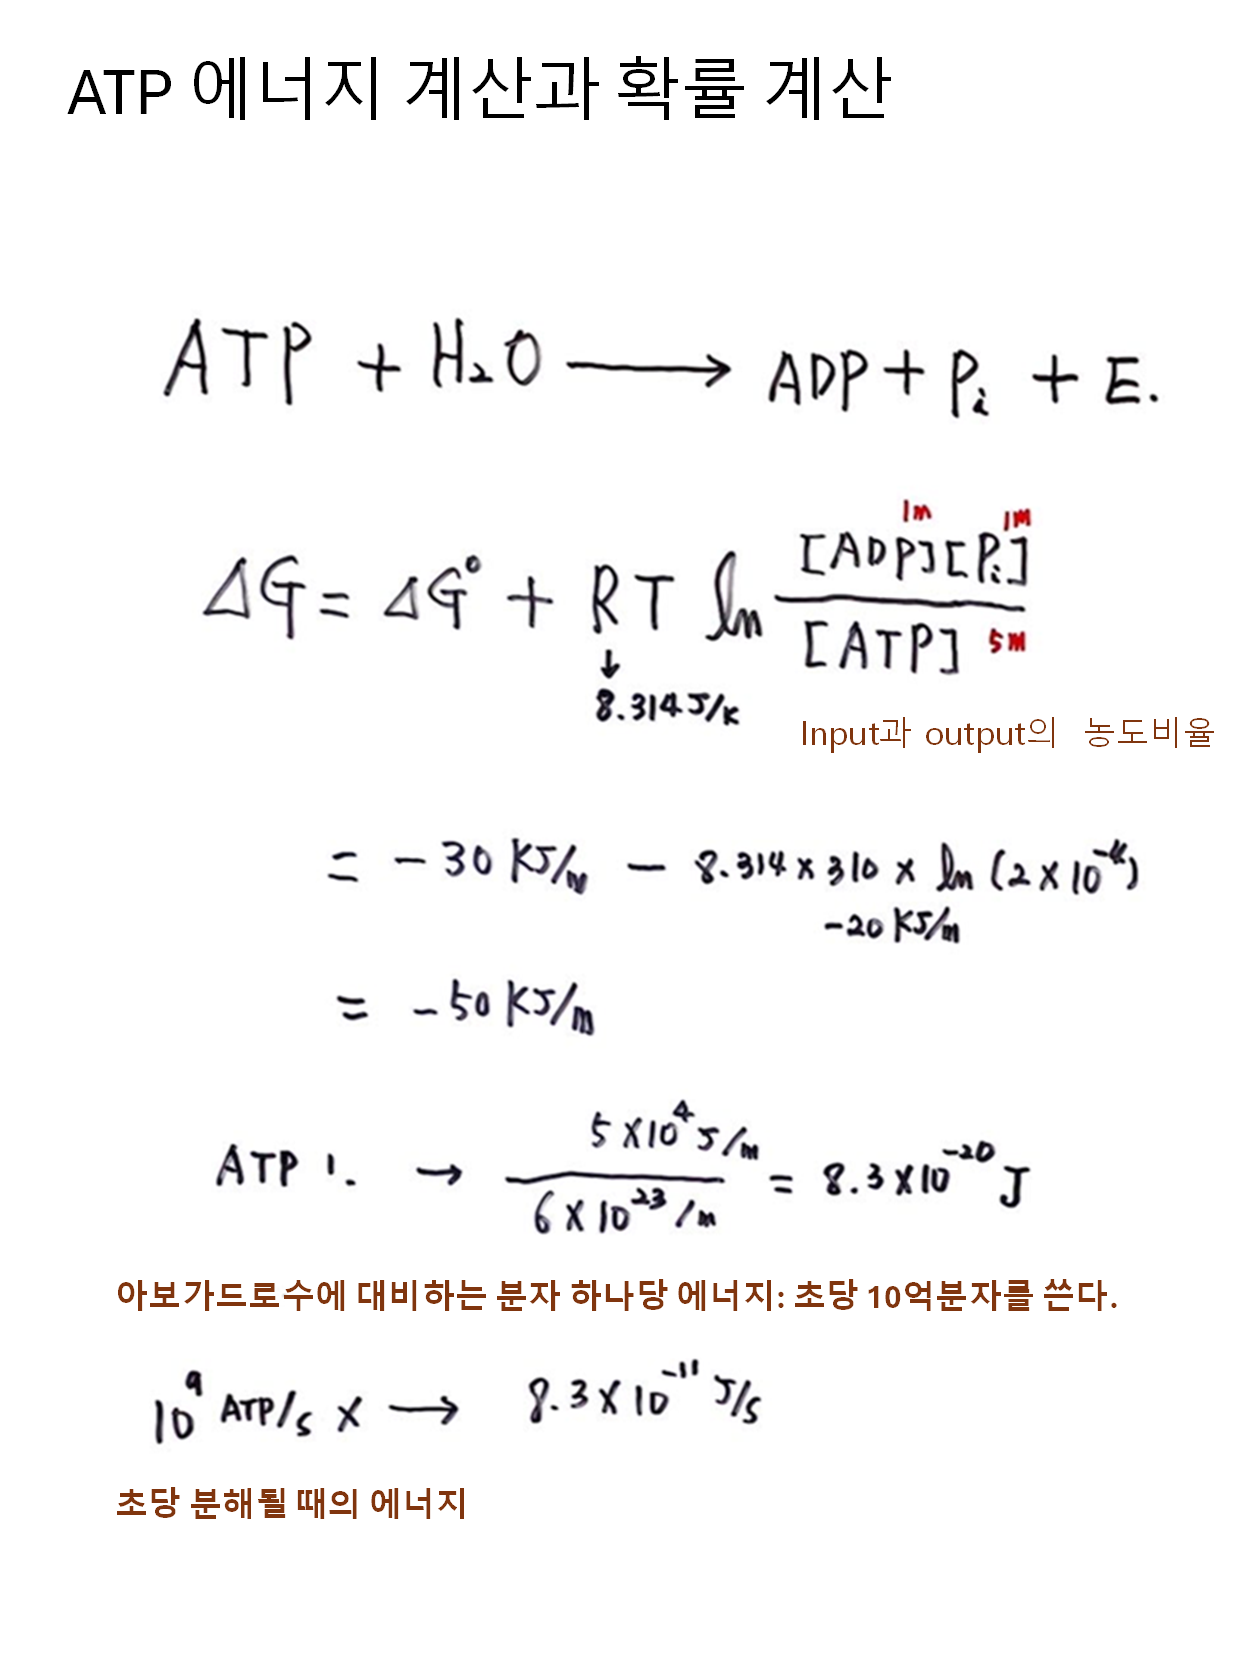 ATP 에너지 계산과 확률 계산
ATP + H₂O ⟶ ADP + Pᵢ + E.
1m 1M
ΔG = ΔG° + RT ln [ADP][Pᵢ] / [ATP] 5M
↓
8.314 J/K
Input과 output의 농도비율
= -30 KJ/m - 8.314 × 310 × ln (2 × 10⁻⁴)
-20 KJ/m
= -50 KJ/m
ATP 1. → 5×10⁴ J/m / 6×10²³ /m = 8.3×10⁻²⁰ J
아보가드로수에 대비하는 분자 하나당 에너지: 초당 10억분자를 쓴다.
10⁹ ATP/s × ⟶ 8.3×10⁻¹¹ J/s
초당 분해될 때의 에너지